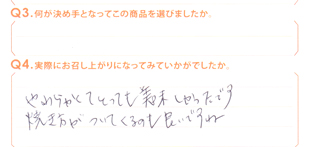 Q3.何が決め手となってこの商品を選びましたか。
Q4.実際にお召し上がりになってみていかがでしたか。
やわらかくてとっても美味しかったです
焼き方がついてくるのも良いですね